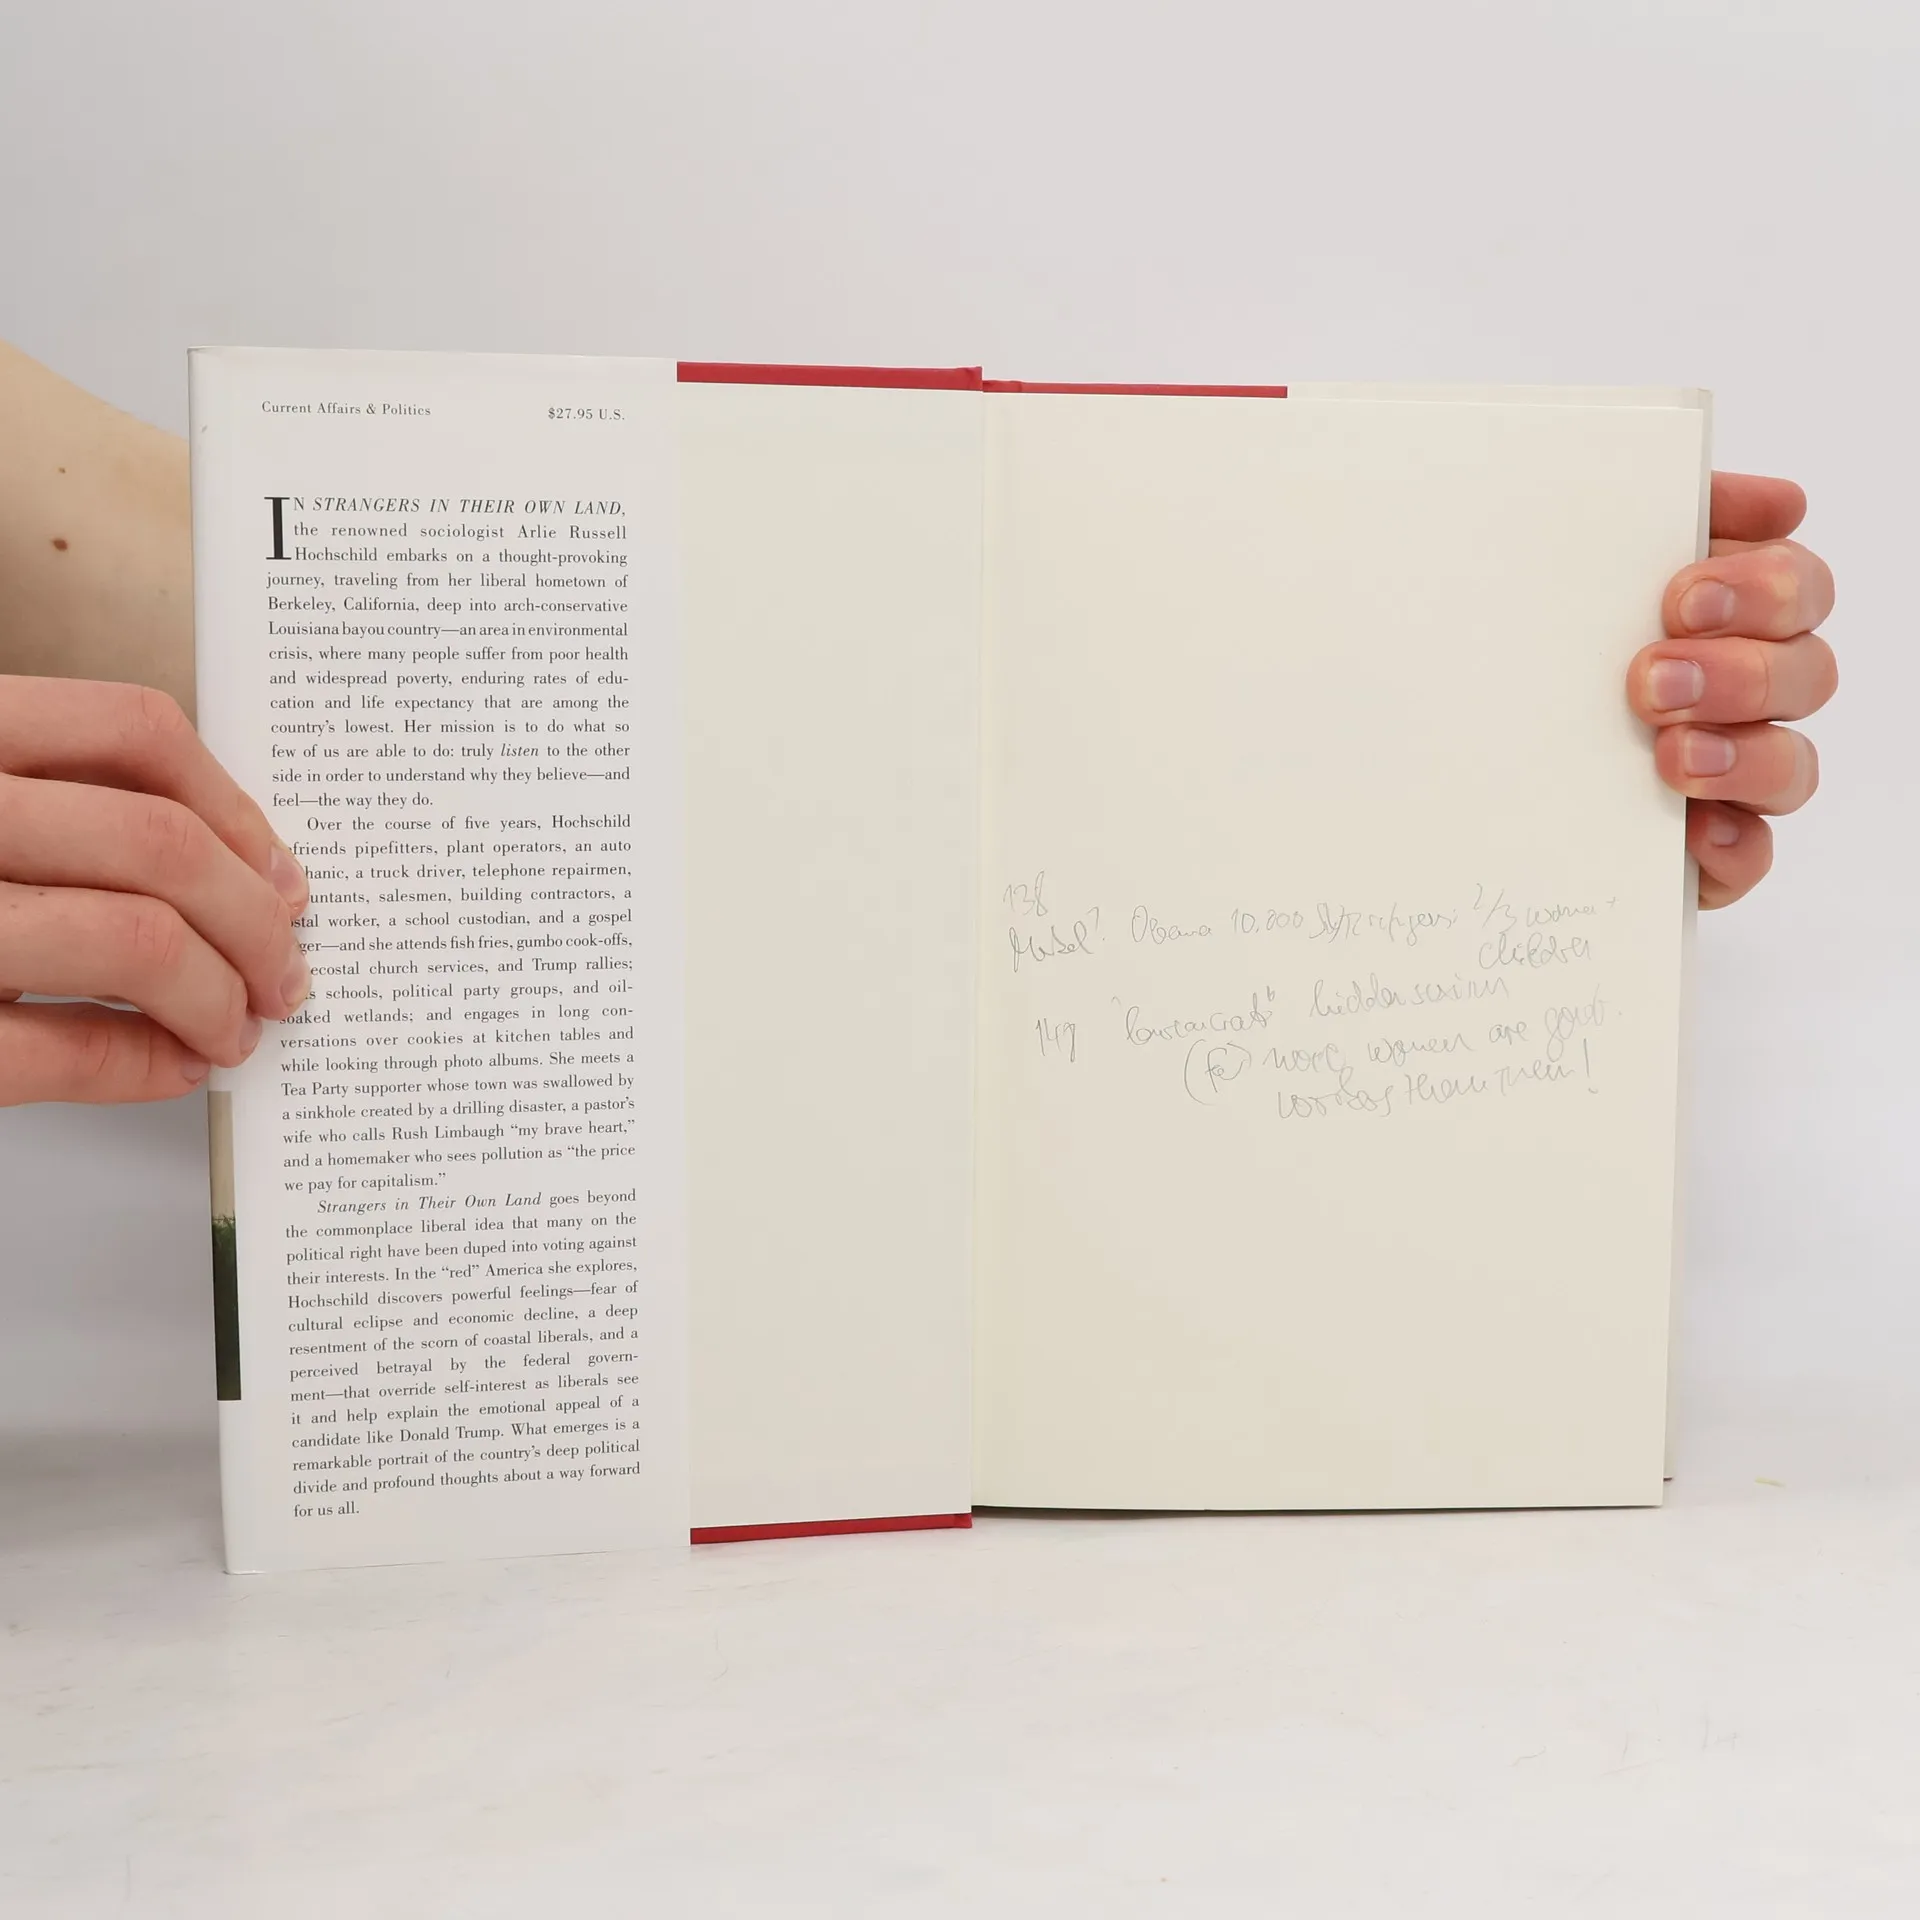 Current Affairs & Politics
$27.95 U.S.
IN STRANGERS IN THEIR OWN LAND,
the renowned sociologist Arlie Russell
Hochschild embarks on a thought-provoking
journey, traveling from her liberal hometown of
Berkeley, California, deep into arch-conservative
Louisiana bayou country—an area in environmental
crisis, where many people suffer from poor health
and widespread poverty, enduring rates of edu-
cation and life expectancy that are among the
country's lowest. Her mission is to do what so
few of us are able to do: truly listen to the other
side in order to understand why they believe—and
feel—the way they do.
Over the course of five years, Hochschild
friends pipefitters, plant operators, an auto
hanic, a truck driver, telephone repairmen,
untants, salesmen, building contractors, a
stal worker, a school custodian, and a gospel
ger—and she attends fish fries, gumbo cook-offs,
ecostal church services, and Trump rallies;
s schools, political party groups, and oil-
soaked wetlands; and engages in long con-
versations over cookies at kitchen tables and
while looking through photo albums. She meets a
Tea Party supporter whose town was swallowed by
a sinkhole created by a drilling disaster, a pastor's
wife who calls Rush Limbaugh “my brave heart,”
and a homemaker who sees pollution as “the price
we pay for capitalism.”
Strangers in Their Own Land goes beyond
the commonplace liberal idea that many on the
political right have been duped into voting against
their interests. In the “red” America she explores,
Hochschild discovers powerful feelings—fear of
cultural eclipse and economic decline, a deep
resentment of the scorn of coastal liberals, and a
perceived betrayal by the federal govern-
ment—that override self-interest as liberals see
it and help explain the emotional appeal of a
candidate like Donald Trump. What emerges is a
remarkable portrait of the country's deep political
divide and profound thoughts about a way forward
for us all.
138
Obama 10.000 refugees: 2/3 women +
children
149 hidden sexism
more women are gov't.
workers than men!